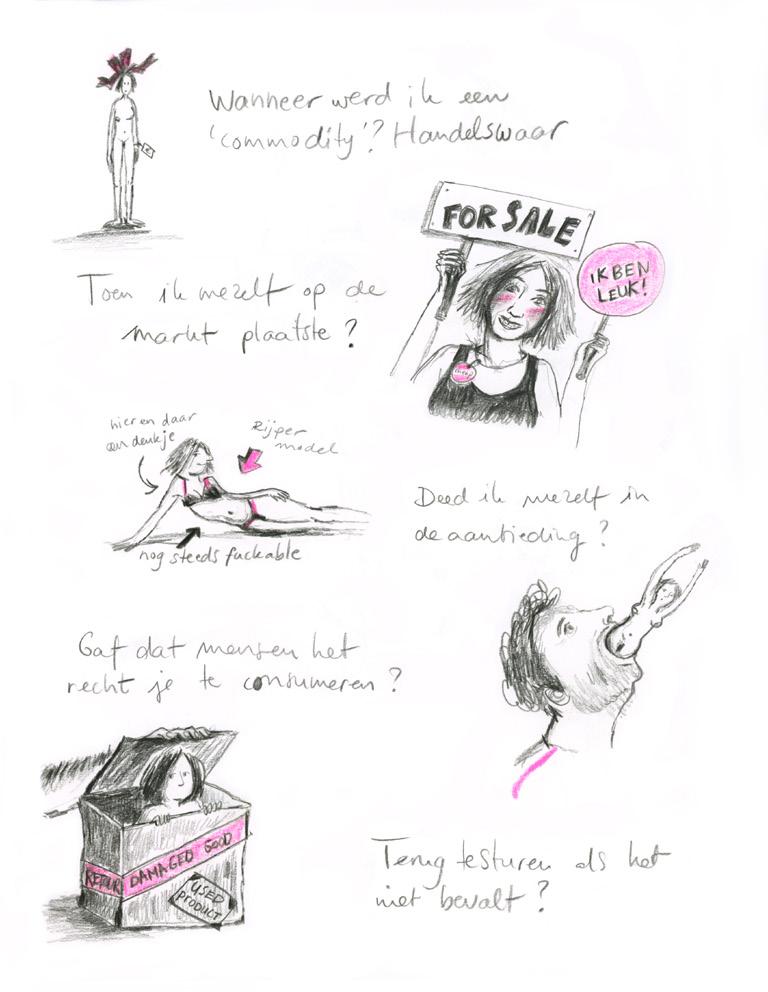 Wanneer werd ik een
'commodity'? Handelswaar
FOR SALE
IK BEN
LEUK!
Toen ik mezelf op de
markt plaatste?
hier en daar
een deukje
Rijper
model
nog steeds fuckable
Deed ik mezelf in
de aanbieding?
Gaf dat mensen het
recht je te consumeren?
RETOUR DAMAGED GOOD
USED
PRODUCT
Terug testuren als het
niet bevalt?